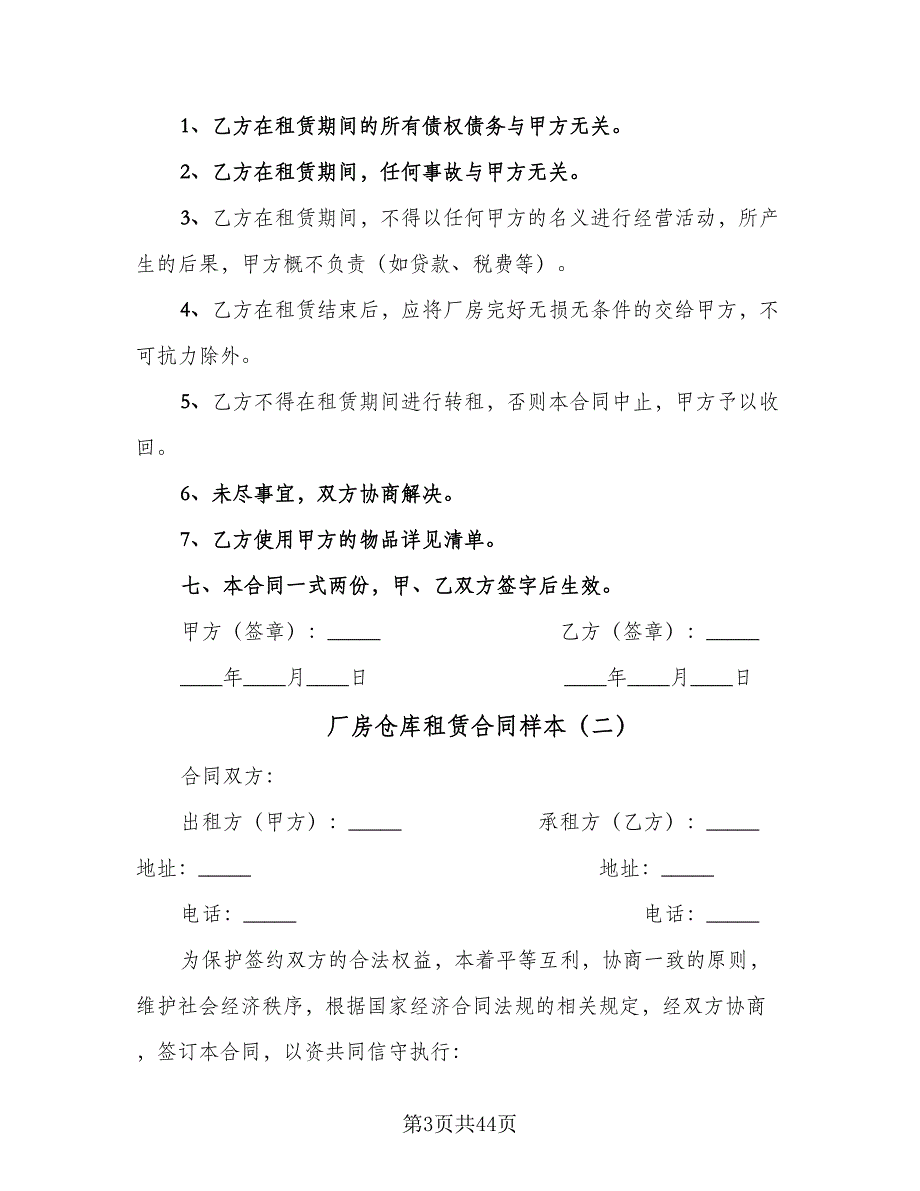 1、乙方在租赁期间的所有债权债务与甲方无关。
2、乙方在租赁期间，任何事故与甲方无关。
3、乙方在租赁期间，不得以任何甲方的名义进行经营活动，所产
生的后果，甲方概不负责（如贷款、税费等）。
4、乙方在租赁结束后，应将厂房完好无损无条件的交给甲方，不
可抗力除外。
5、乙方不得在租赁期间进行转租，否则本合同中止，甲方予以收
回。
6、未尽事宜，双方协商解决。
7、乙方使用甲方的物品详见清单。
七、本合同一式两份，甲、乙双方签字后生效。
甲方（签章）：_____ 乙方（签章）：_____
____年____月____日 ____年____月____日
厂房仓库租赁合同样本（二）
合同双方：
出租方（甲方）：_____ 承租方（乙方）：_____
地址：_____ 地址：_____
电话：_____ 电话：_____
为保护签约双方的合法权益，本着平等互利，协商一致的原则，
维护社会经济秩序，根据国家经济合同法规的相关规定，经双方协商
，签订本合同，以资共同信守执行：
第3页共44页